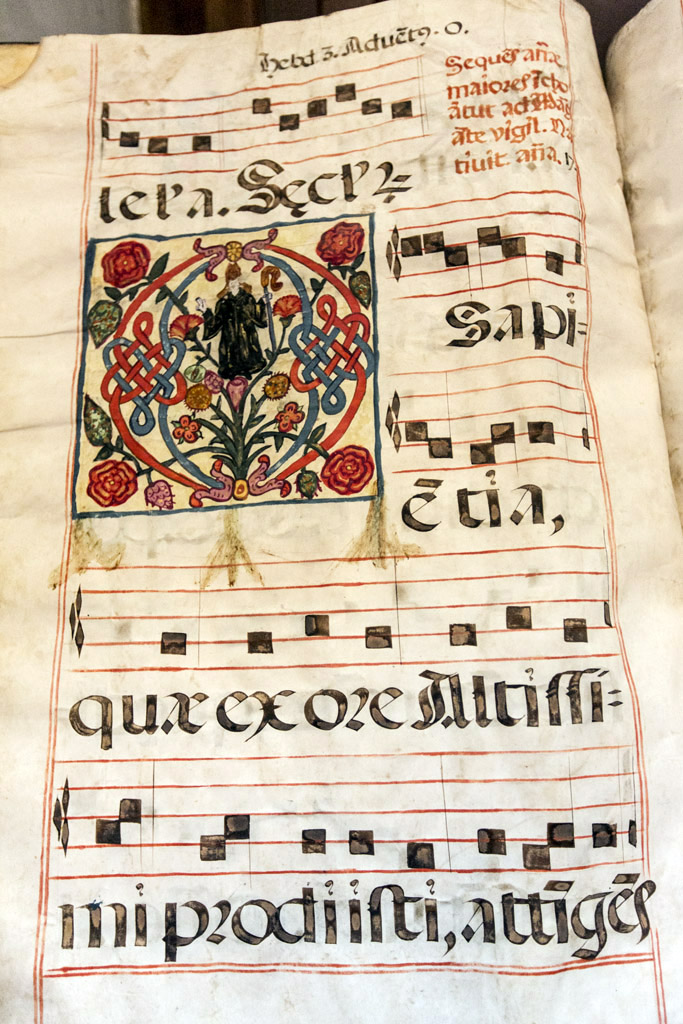 Hebd 3. Aduētꝰ. O.
Sequēs añæ
maiores
ātur ad Mag
āte vigil. Na
tiuit. aña.
lel'a. Sęcl'
Sapi=
ētia,
quæ ex ore Altissi=
mi prodiisti, attīgēs